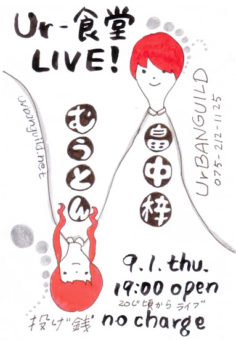 Ur-食堂
LIVE!
urbanguild.net
むうとん
畠中梓
UrBANGUILD
075-212-1125
9.1.thu.
19:00 open
20じ頃からライブ
投げ銭 no charge